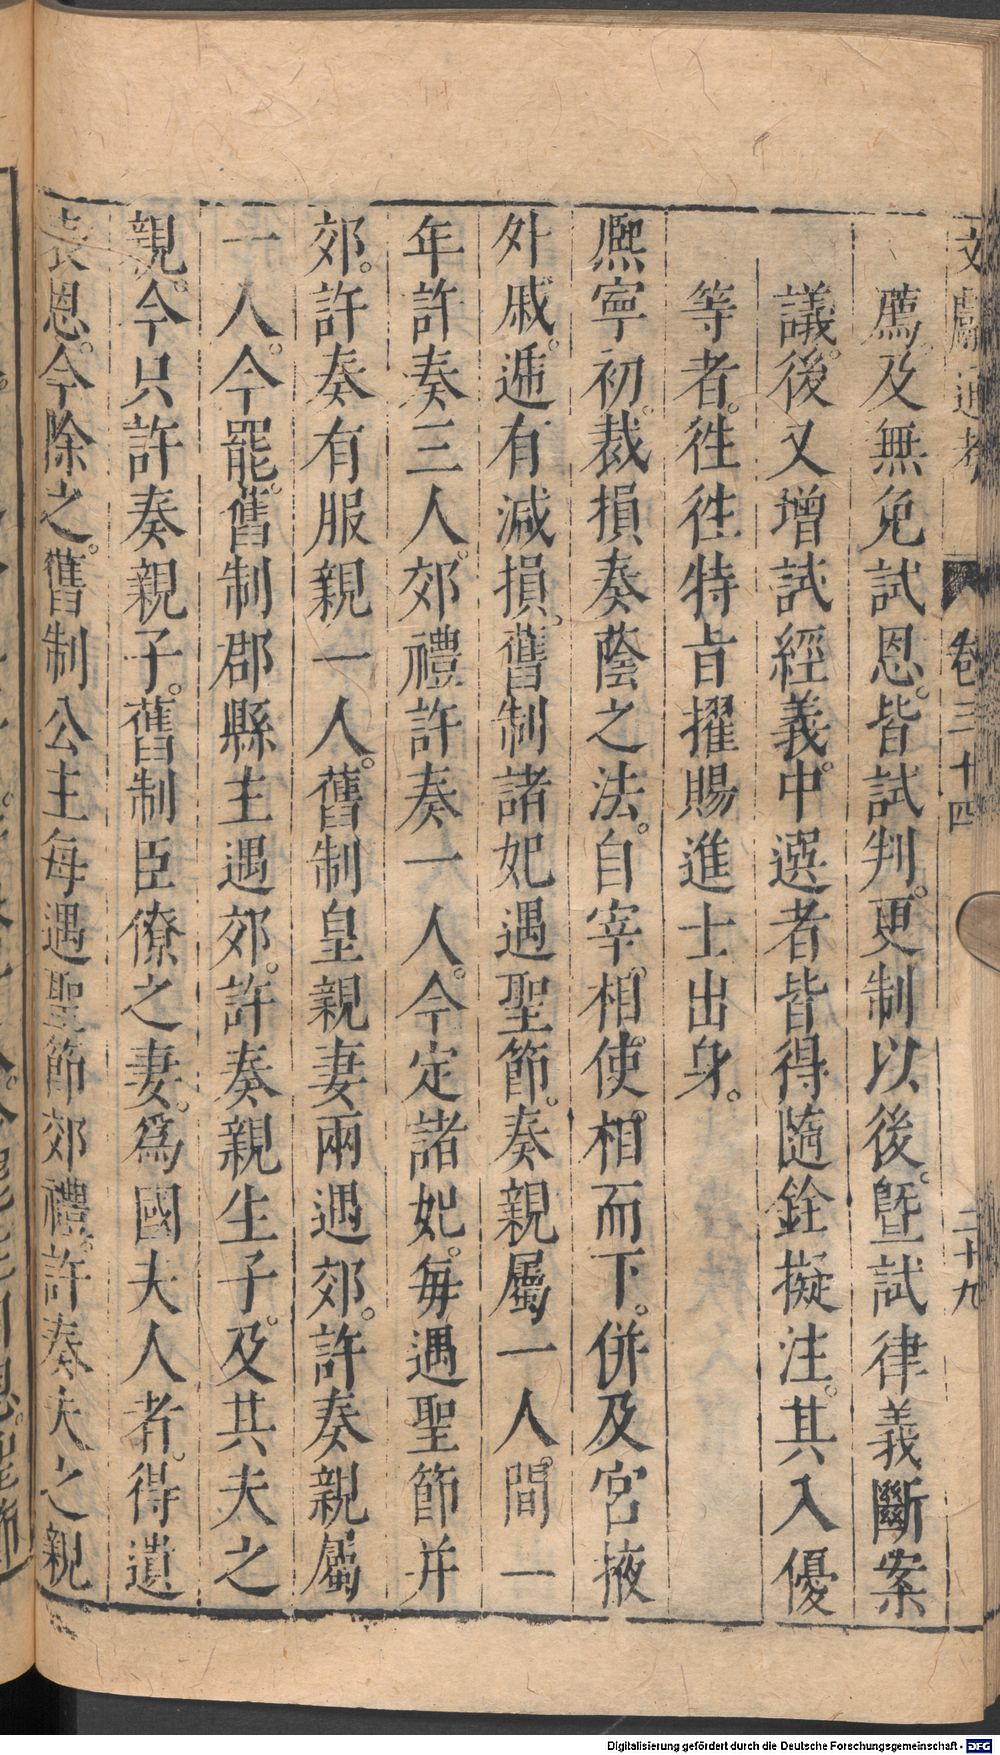 文獻通考 卷三十四 二十九
薦及無免試恩。皆試判。更制以後。曁試律義斷案
議。後又增試經義。中選者皆得隨銓擬注。其入優
等者。徃徃特旨擢賜進士出身。
熈寧初。裁損奏蔭之法。自宰相。使相而下。併及宮掖
外戚。遞有減損。舊制諸妃遇聖節。奏親屬一人。間一
年許奏三人。郊禮許奏一人。今定諸妃。每遇聖節并
郊。許奏有服親一人。舊制皇親妻兩遇郊。許奏親屬
一人。今罷。舊制郡縣主遇郊。許奏親生子。及其夫之
親。今只許奏親子。舊制臣僚之妻。爲國夫人者。得遺
表恩。今除之。舊制公主每遇聖節郊禮。許奏夫之親
Digitalisierung gefördert durch die Deutsche Forschungsgemeinschaft - DFG